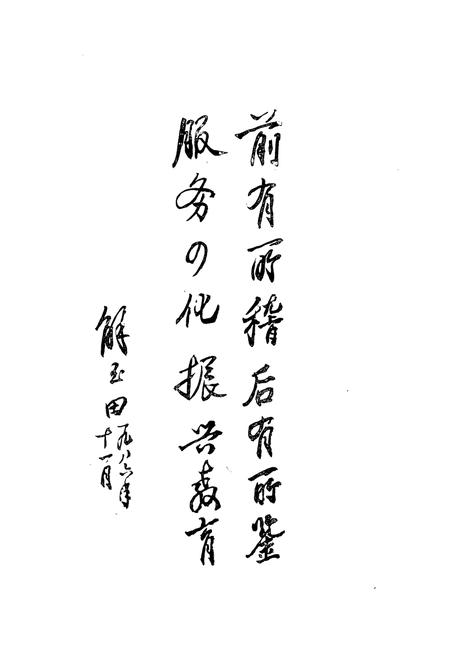 前有所稽后有所鉴
服务四化振兴教育
解玉田
一九八六年
十一月